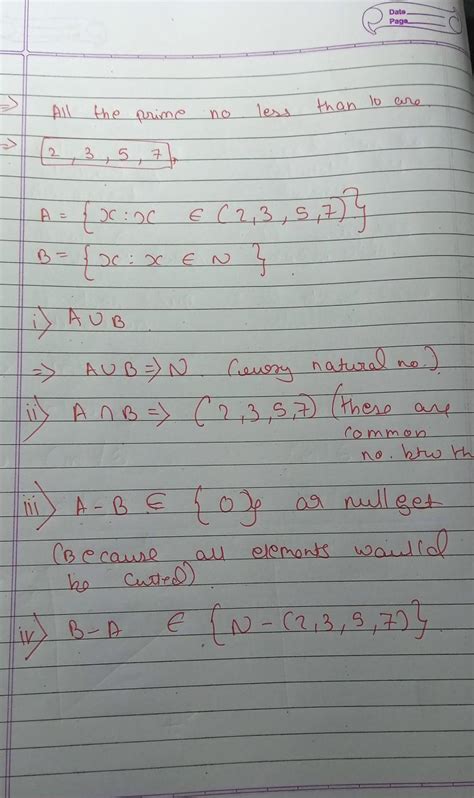 Date
Page
=> All the prime no less than 10 are
=> 2, 3, 5, 7,
A = {x : x ∈ (2,3,5,7)}
B = {x : x ∈ N }
i) A ∪ B
=> A∪B => N. (every natural no.)
ii) A ∩ B => (2,3,5,7) (these are
common
no. btw th
iii) A - B ∈ {0} or null get
(Because all elements would
be cutted)
iv) B - A ∈ {N - (2,3,5,7)}